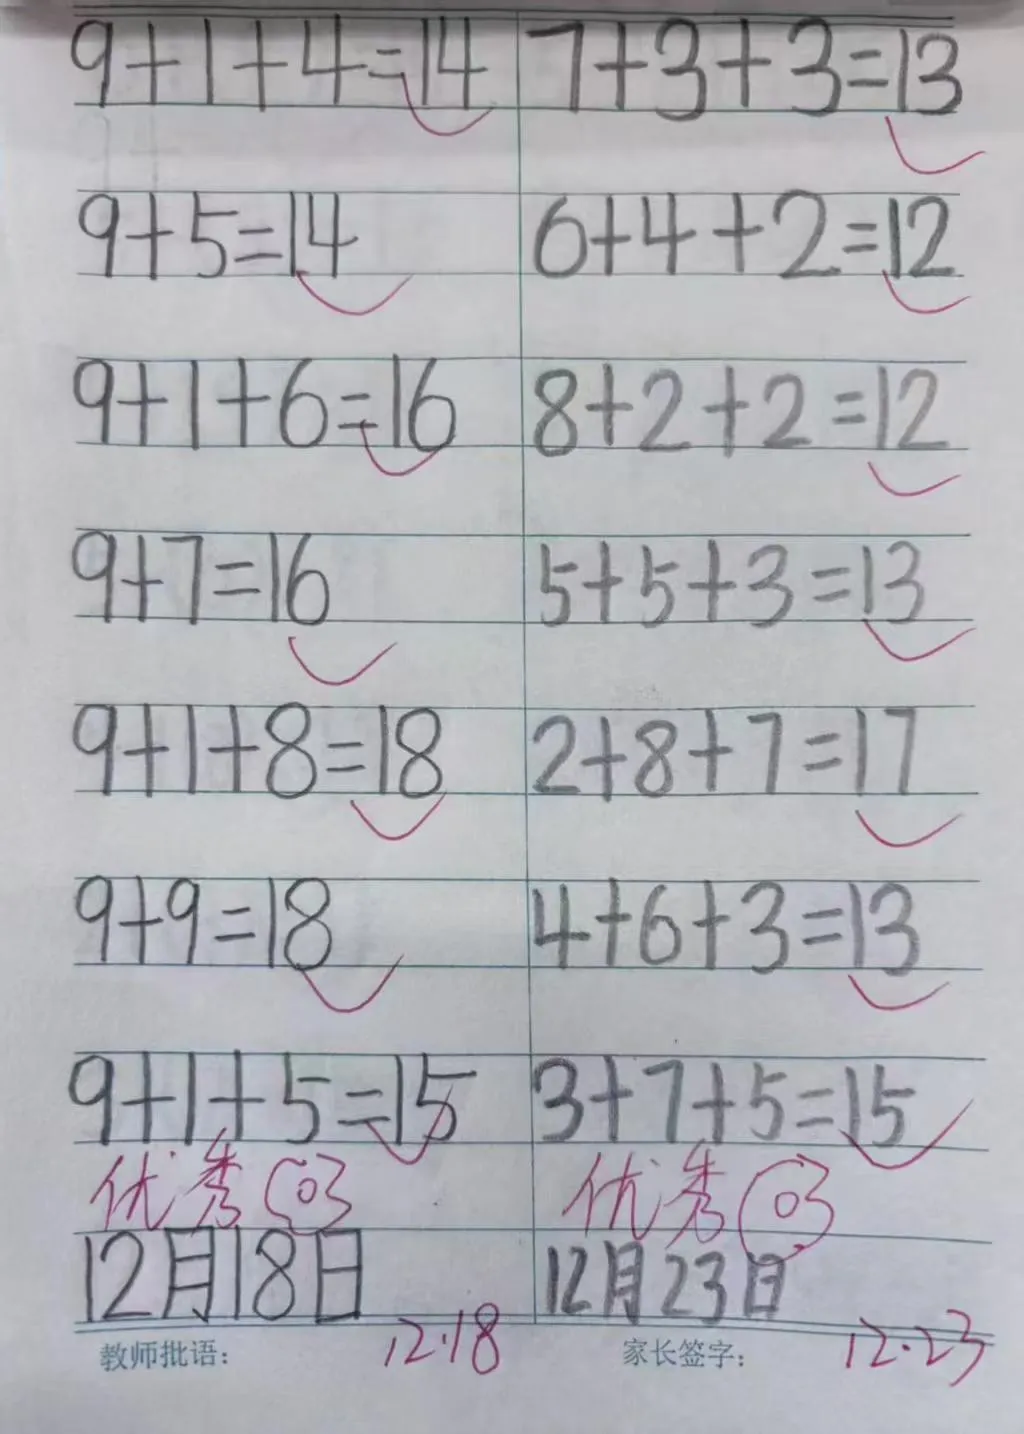 9+1+4=14
9+5=14
9+1+6=16
9+7=16
9+1+8=18
9+9=18
9+1+5=15
优秀
12月18日
教师批语：
12.18
7+3+3=13
6+4+2=12
8+2+2=12
5+5+3=13
2+8+7=17
4+6+3=13
3+7+5=15
优秀
12月23日
家长签字：
12.23